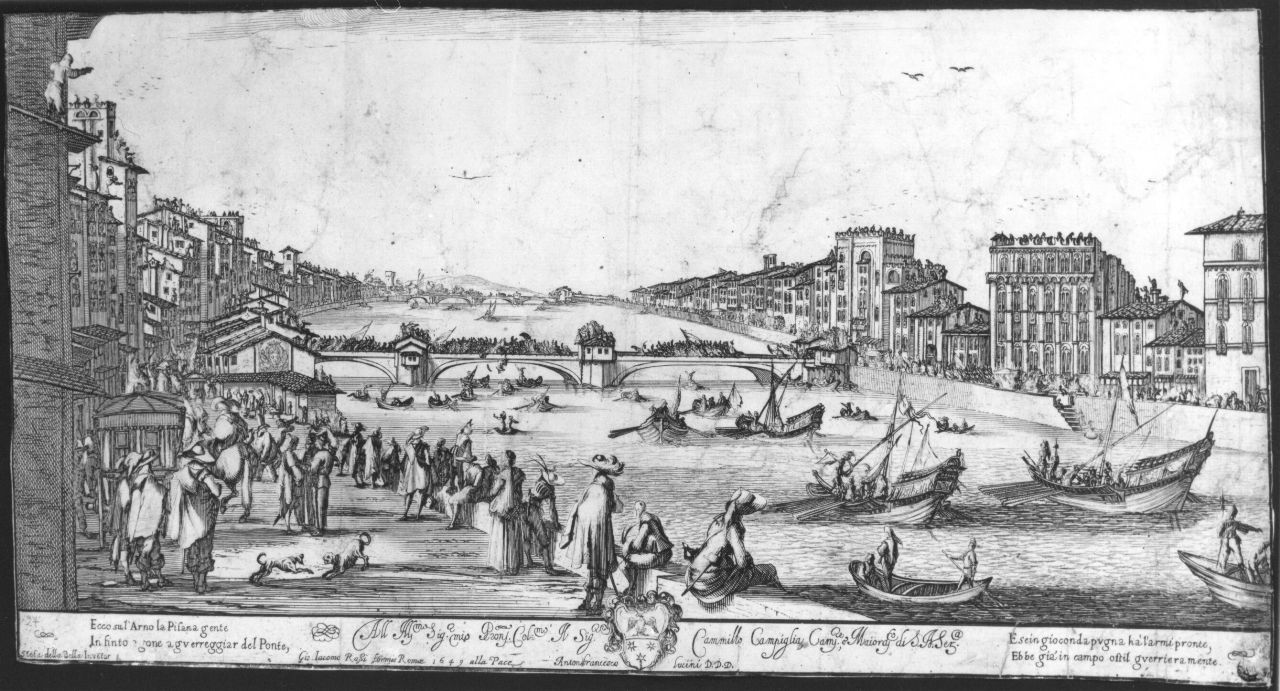 24
Ecco sul'Arno la Pisana gente
In finto gone a gverreggiar del Ponte,
Stefa della Bella Inventor
All' Ill.mo Sig.r mio Pron. Col.mo Il Sig.r Cammillo Campiglia, Cam.o e Maiord.o di S.A. Ser.a
Gio Iacomo Rossi formis Romæ 1649 alla Pace
Antonfrancesco lucini D.D.D.
E se in gioconda pvgna ha l'armi pronte,
Ebbe gia' in campo ostil gverriera mente.